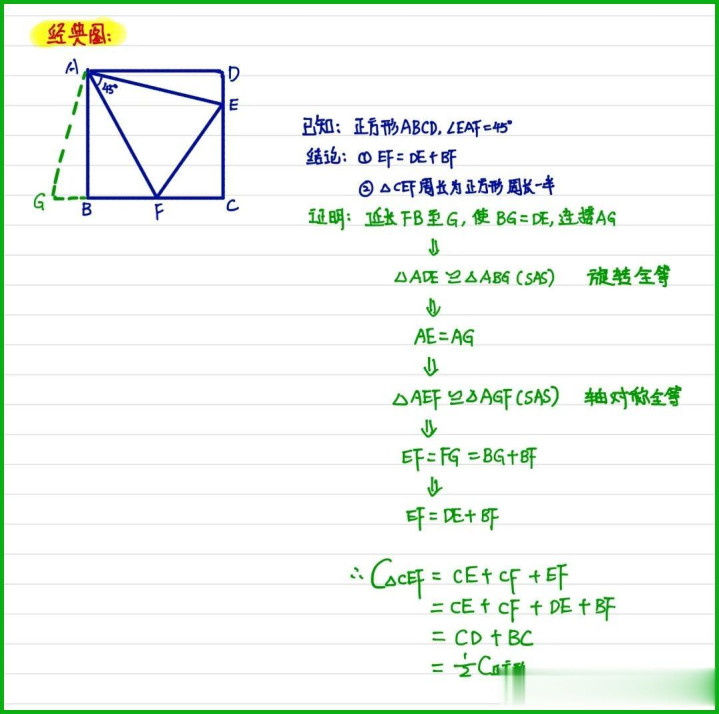 经典图:
A
D
45°
E
G
B
F
C
已知: 正方形ABCD, ∠EAF=45°
结论: ① EF=DE+BF
② △CEF周长为正方形周长一半
证明: 延长FB至G, 使BG=DE, 连接AG
⇓
△ADE≌△ABG(SAS) 旋转全等
⇓
AE=AG
⇓
△AEF≌△AGF(SAS) 轴对称全等
⇓
EF=FG=BG+BF
⇓
EF=DE+BF
∴ C△CEF = CE+CF+EF
= CE+CF+DE+BF
= CD+BC
= ½C